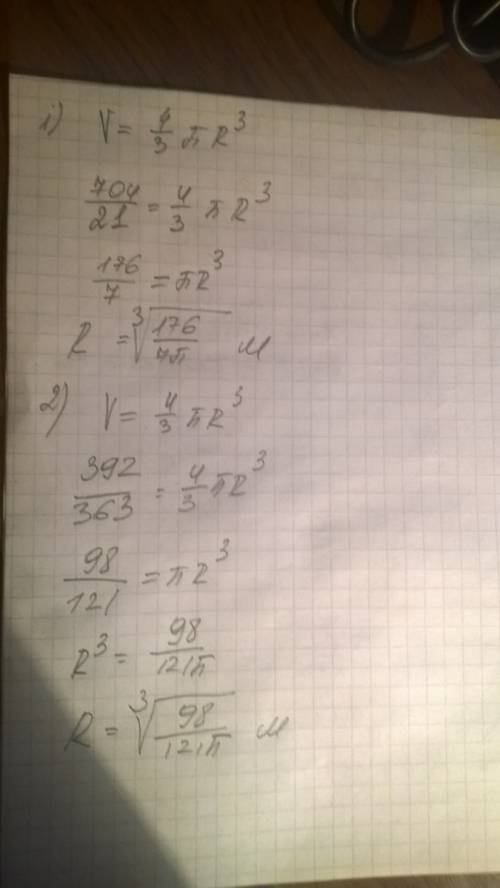 1) V = 4/3 πR³
704/21 = 4/3 πR³
176/7 = πR³
R = ∛(176/7π) м
2) V = 4/3 πR³
392/363 = 4/3 πR³
98/121 = πR³
R³ = 98/121π
R = ∛(98/121π) м